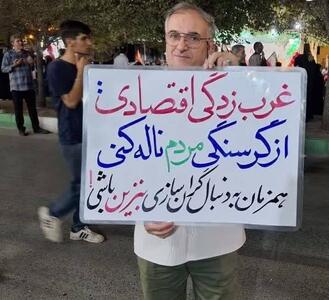 غرب زدگی اقتصادی:
از گرسنگی مردم ناله کنی
همزمان به دنبال گران سازی بنزین باشی!